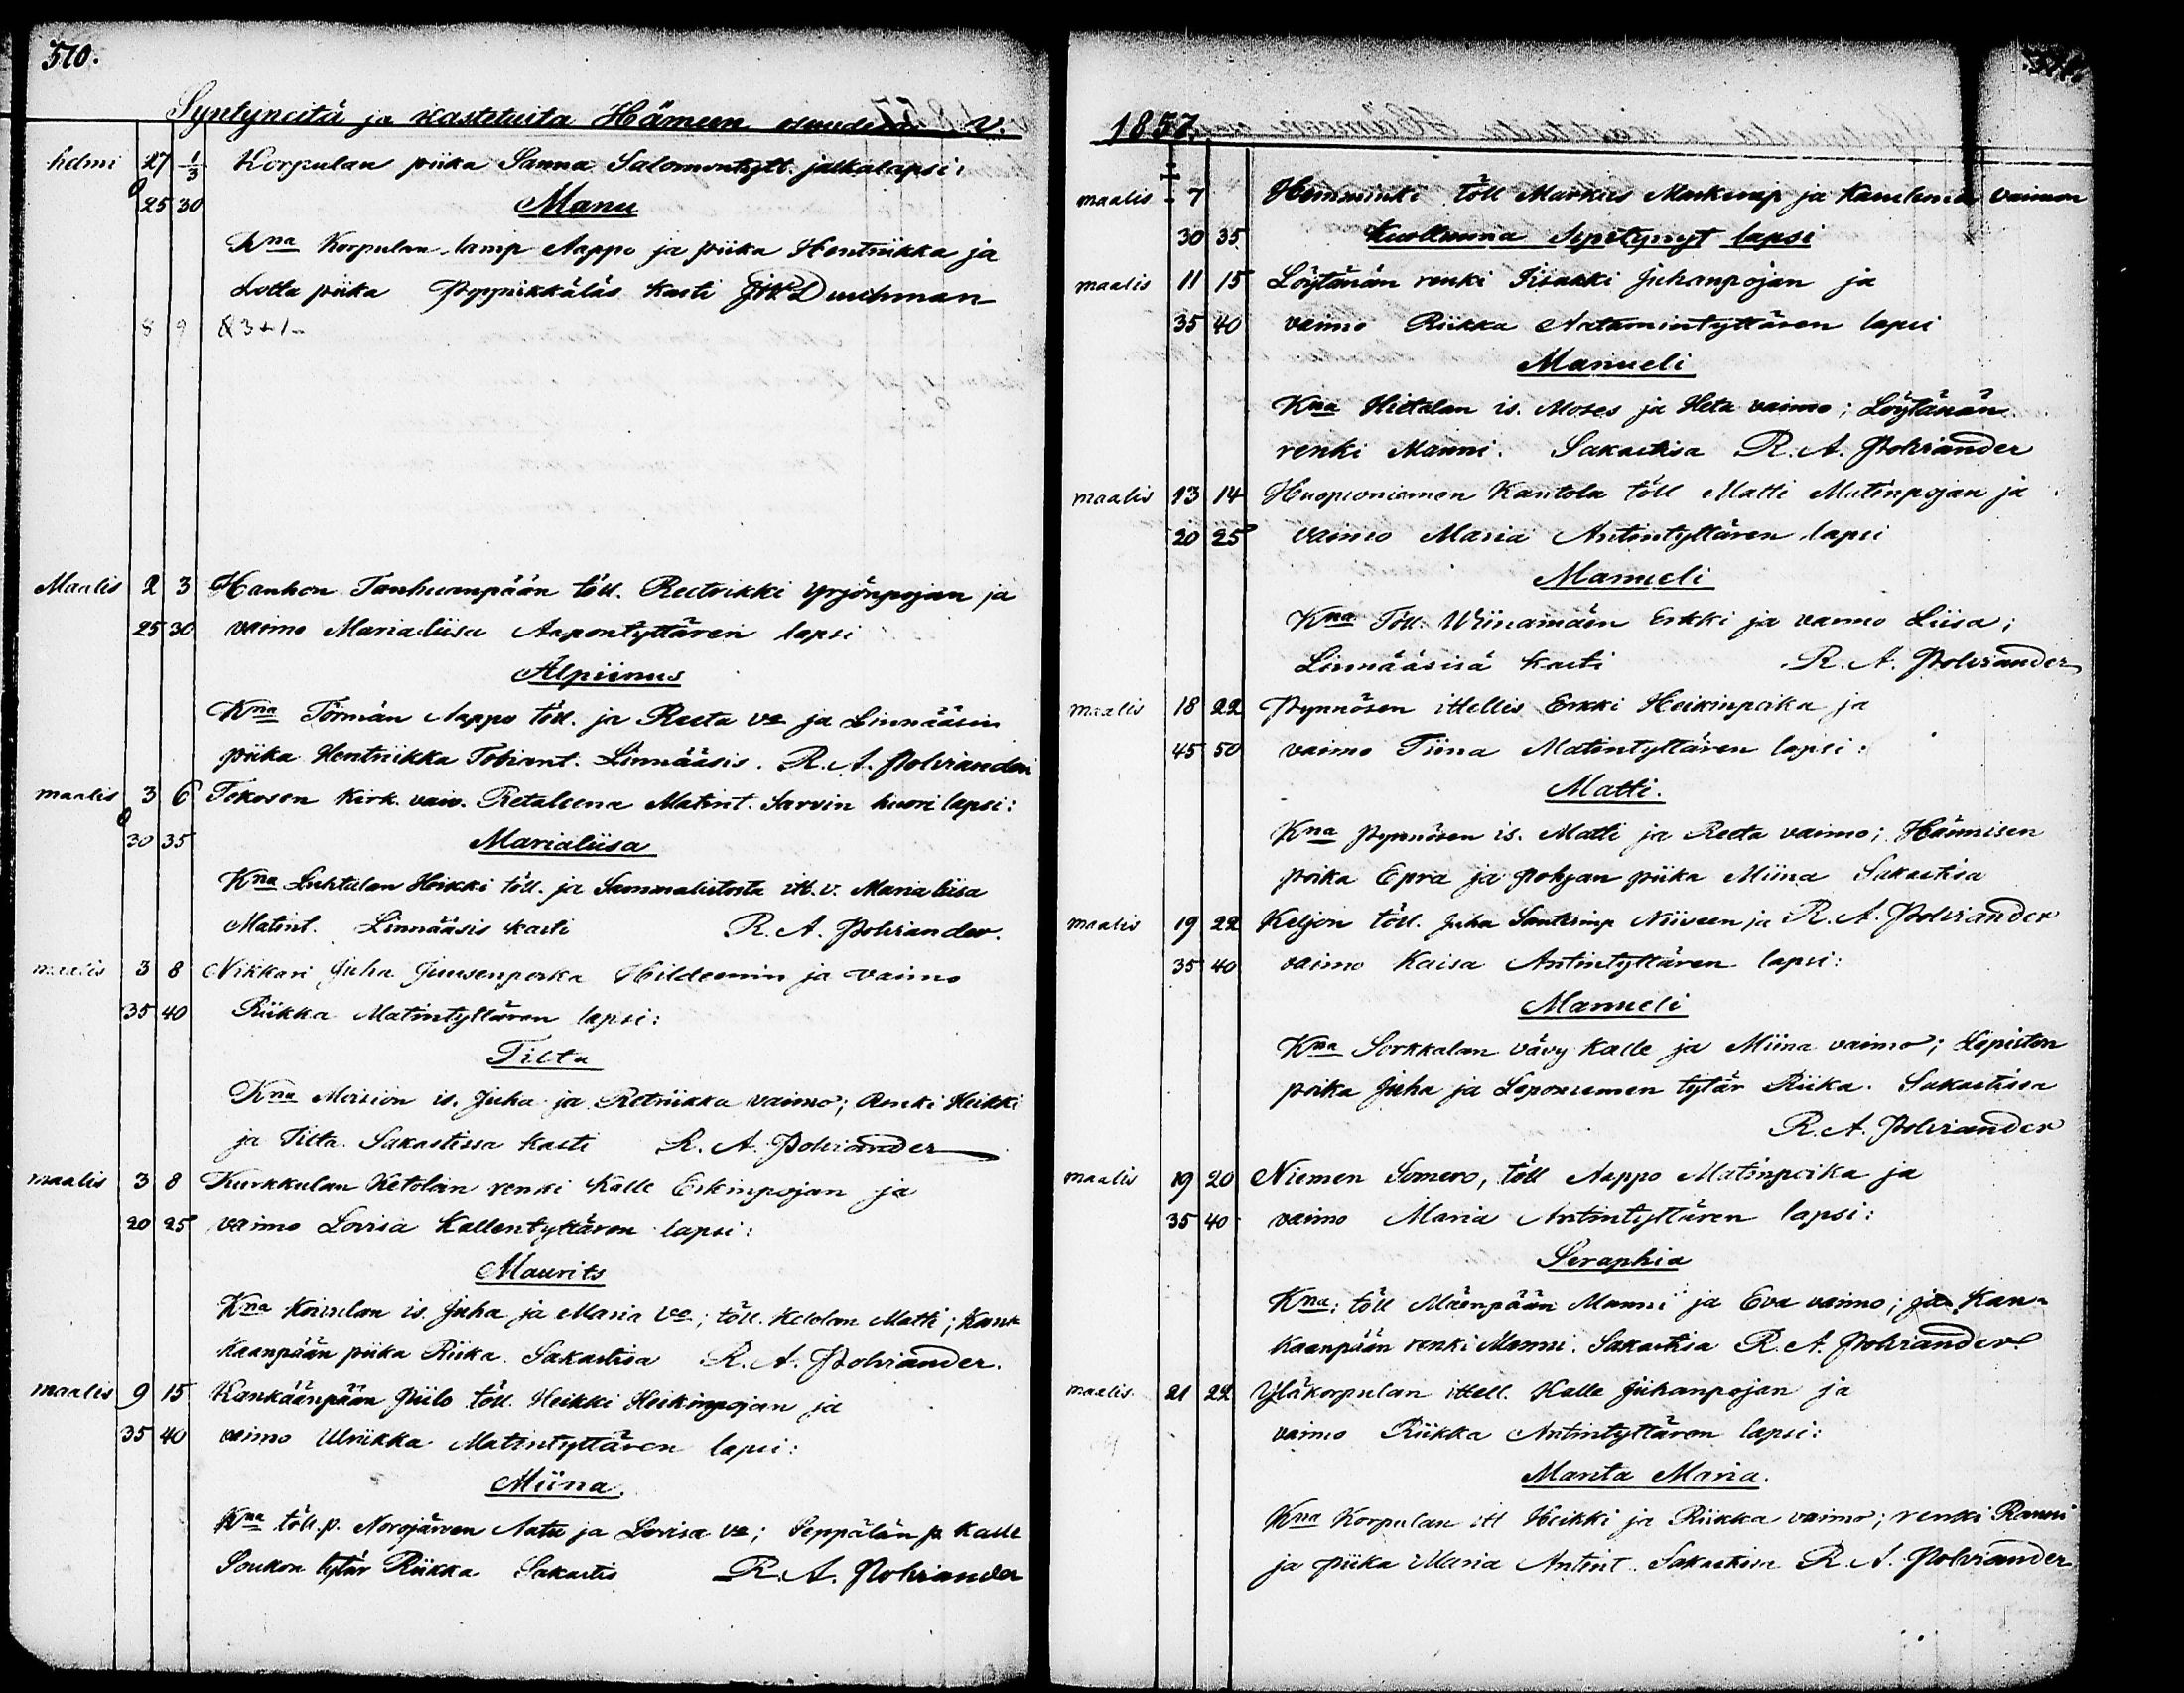 510.
Syntyneitä ja kastetuita Hämeen v.
helmi 27 1/3 Korpulan piika Sanna Salomontytt. jalkalapsi:
25 30 Manu
Kna Korpulan lamp Aappo ja piika Hentriikka ja
Lotta piika kasti Duchman
8 9
Maalis 2 3 Hanhon Tanhuanpään töll. Reetrikki Yrjönpojan ja
25 30 vaimo Marialiisa Aapontyttären lapsi
Alpiinus
Kna Törmän Aappo töll. ja Reeta vo ja Linnääsin
piika Hentriikka Tobiant. Linnääsis. R. A. Polviander
maalis 3 6 Tekosen Kirk. vaiv. Retaleena Matint. Sarvin huori lapsi:
30 35 Marialiisa
Kna Luhtalan Heikki töll. ja Sammalistosta itt. v. Maria liisa
Matint. Linnääsis kasti R. A. Polviander.
maalis 3 8 Nikkari Juha Juusenpoika Hildeenin ja vaimo
35 40 Riikka Matintyttären lapsi:
Tilta
Kna Moision is. Juha ja Retriikka vaimo; Renki Heikki
ja Tilta. Sakastissa kasti R. A. Polviander
maalis 3 8 Kurkkulan Ketolan renki Kalle Erkinpojan ja
20 25 vaimo Lovisa Kallentyttären lapsi:
Maurits
Kna Koivulan is. Juha ja Maria vo; töll. Ketolan Matti; Kan-
kaanpään piika Riika. Sakastisa R. A. Polviander.
maalis 9 15 Kankaanpään Piilo töll. Heikki Heikinpojan ja
35 40 vaimo Ulriikka Matintyttären lapsi:
Miina.
Kna töll. p. Norojärven Aatu ja Lovisa vo; Seppälän p. Kalle
Soukon tytär Riikka Sakastis R. A. Polviander
1857.
maalis 7 Hemminki töll Markus Markusp ja vaimon
30 35 Kuollunna Syntynyt lapsi
maalis 11 15 Löytänän renki Iisakki Juhanpojan ja
35 40 vaimo Riikka Aatamintyttären lapsi
Manueli
Kna Hietalan is. Moses ja Heta vaimo; Löytänän
renki Manni. Sakastisa R. A. Polviander
maalis 13 14 Huopioniemen Kantola töll Matti Matinpojan ja
20 25 vaimo Maria Antintyttären lapsi
Manueli
Kna Töll. Wiinamäen Erkki ja vaimo Liisa;
Linnääsisä kasti R. A. Polviander
maalis 18 22 Pynnösen ittellis Erkki Heikinpoika ja
45 50 vaimo Tiina Matintyttären lapsi:
Matti.
Kna Pynnösen is. Matti ja Reeta vaimo; Hännisen
poika Epra ja Pohjan piika Miina Sakastisa
maalis 19 22 Keljon töll. Juha Santerinp Niiveen ja R. A. Polviander
35 40 vaimo Kaisa Antintyttären lapsi:
Manueli
Kna Sorkkalan vävy Kalle ja Miina vaimo; Lepistön
poika Juha ja Leponiemen tytär Riika. Sakastissa
R. A. Polviander
maalis 19 20 Niemen Somero, töll Aappo Matinpoika ja
35 40 vaimo Maria Antintyttären lapsi:
Seraphia
Kna: töll Mäenpään Manni ja Eva vaimo; ja Kan-
kaanpään renki Manni. Sakastisa R. A. Polviander
maalis 21 22 Yläkorpulan ittell. Kalle Juhanpojan ja
vaimo Riikka Antintyttären lapsi:
Manta Maria.
Kna Korpulan itt Heikki ja Riikka vaimo; renki
ja piika Maria Antint. Sakastisa R. A. Polviander